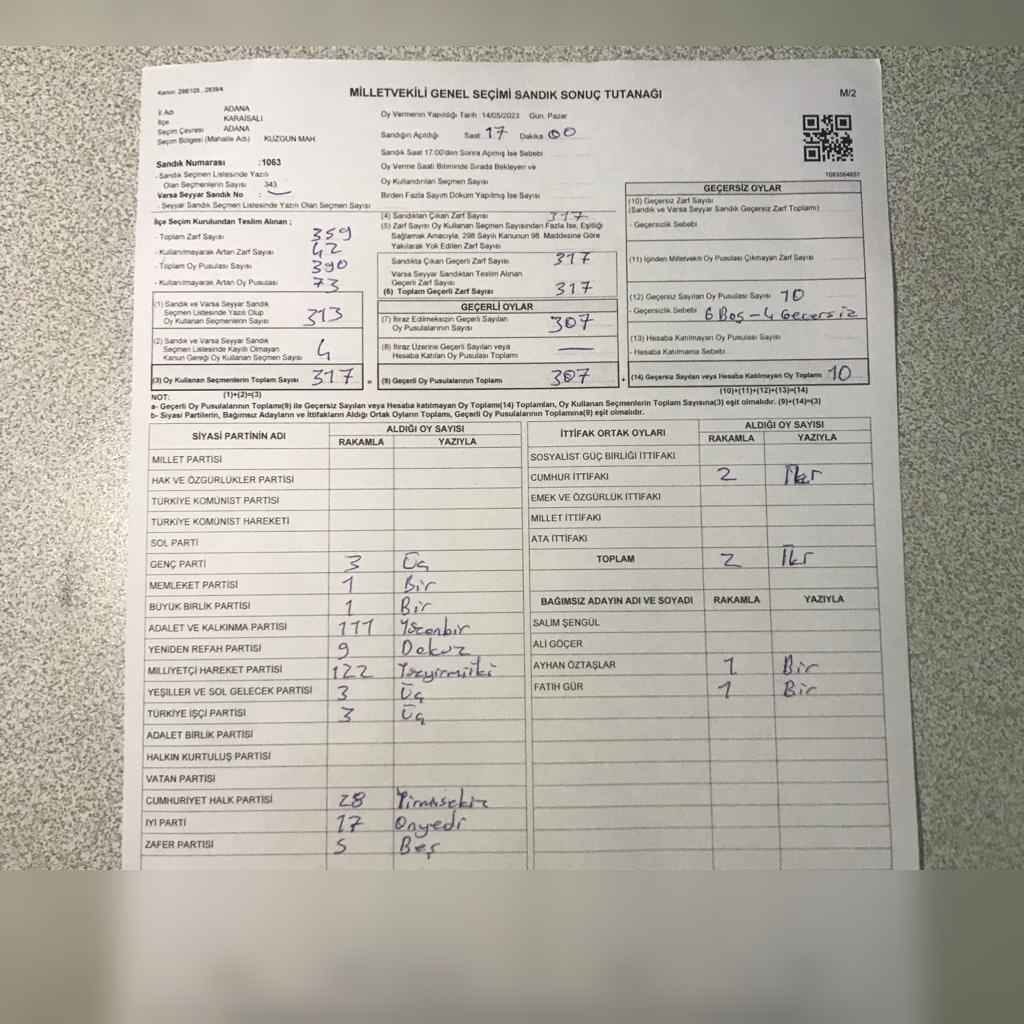 Kanun: 298/105, 2839/4
MİLLETVEKİLİ GENEL SEÇİMİ SANDIK SONUÇ TUTANAĞI
M/2
İl Adı ADANA
İlçe KARAİSALI
Seçim Çevresi ADANA
Seçim Bölgesi (Mahalle Adı) KUZGUN MAH
Sandık Numarası :1063
- Sandık Seçmen Listesinde Yazılı
Olan Seçmenlerin Sayısı 343
Varsa Seyyar Sandık No : -
- Seyyar Sandık Seçmen Listesinde Yazılı Olan Seçmen Sayısı
Oy Vermenin Yapıldığı Tarih :14/05/2023 Gün: Pazar
Sandığın Açıldığı Saat 17 Dakika 00
Sandık Saat 17.00'den Sonra Açılmış İse Sebebi
Oy Verme Saati Bitiminde Sırada Bekleyen ve
Oy Kullandırılan Seçmen Sayısı
Birden Fazla Sayım Döküm Yapılmış İse Sayısı
İlçe Seçim Kurulundan Teslim Alınan ;
- Toplam Zarf Sayısı 359
- Kullanılmayarak Artan Zarf Sayısı 42
- Toplam Oy Pusulası Sayısı 390
- Kullanılmayarak Artan Oy Pusulası 73
(1) Sandık ve Varsa Seyyar Sandık
Seçmen Listesinde Yazılı Olup
Oy Kullanan Seçmenlerin Sayısı 313
(2) Sandık ve Varsa Seyyar Sandık
Seçmen Listesinde Kayıtlı Olmayan
Kanun Gereği Oy Kullanan Seçmen Sayısı 4
(3) Oy Kullanan Seçmenlerin Toplam Sayısı 317
(1)+(2)=(3)
(4) Sandıktan Çıkan Zarf Sayısı 317
(5) Zarf Sayısı Oy Kullanan Seçmen Sayısından Fazla İse, Eşitliği
Sağlamak Amacıyla, 298 Sayılı Kanunun 98. Maddesine Göre
Yakılarak Yok Edilen Zarf Sayısı
Sandıkta Çıkan Geçerli Zarf Sayısı 317
Varsa Seyyar Sandıktan Teslim Alınan
Geçerli Zarf Sayısı
(6) Toplam Geçerli Zarf Sayısı 317
GEÇERLİ OYLAR
(7) İtiraz Edilmeksizin Geçerli Sayılan
Oy Pusulalarının Sayısı 307
(8) İtiraz Üzerine Geçerli Sayılan veya
Hesaba Katılan Oy Pusulası Toplamı —
= (9) Geçerli Oy Pusulalarının Toplamı 307
GEÇERSİZ OYLAR
(10) Geçersiz Zarf Sayısı
(Sandık ve Varsa Seyyar Sandık Geçersiz Zarf Toplamı)
- Geçersizlik Sebebi
(11) İçinden Milletvekili Oy Pusulası Çıkmayan Zarf Sayısı
(12) Geçersiz Sayılan Oy Pusulası Sayısı 10
- Geçersizlik Sebebi 6 Boş - 4 Gecersiz
(13) Hesaba Katılmayan Oy Pusulası Sayısı
- Hesaba Katılmama Sebebi
+ (14) Geçersiz Sayılan veya Hesaba Katılmayan Oy Toplamı 10
(10)+(11)+(12)+(13)=(14)
NOT:
a- Geçerli Oy Pusulalarının Toplamı(9) ile Geçersiz Sayılan veya Hesaba katılmayan Oy Toplamı(14) Toplamları, Oy Kullanan Seçmenlerin Toplam Sayısına(3) eşit olmalıdır. (9)+(14)=(3)
b- Siyasi Partilerin, Bağımsız Adayların ve İttifakların Aldığı Ortak Oyların Toplamı, Geçerli Oy Pusulalarının Toplamına(9) eşit olmalıdır.
SİYASİ PARTİNİN ADI
ALDIĞI OY SAYISI
RAKAMLA YAZIYLA
MİLLET PARTİSİ
HAK VE ÖZGÜRLÜKLER PARTİSİ
TÜRKİYE KOMÜNİST PARTİSİ
TÜRKİYE KOMÜNİST HAREKETİ
SOL PARTİ
GENÇ PARTİ 3 Üç
MEMLEKET PARTİSİ 1 Bir
BÜYÜK BİRLİK PARTİSİ 1 Bir
ADALET VE KALKINMA PARTİSİ 111 Yüzonbir
YENİDEN REFAH PARTİSİ 9 Dokuz
MİLLİYETÇİ HAREKET PARTİSİ 122
YEŞİLLER VE SOL GELECEK PARTİSİ 3 Üç
TÜRKİYE İŞÇİ PARTİSİ 3 Üç
ADALET BİRLİK PARTİSİ
HALKIN KURTULUŞ PARTİSİ
VATAN PARTİSİ
CUMHURİYET HALK PARTİSİ 28
İYİ PARTİ 17 Onyedi
ZAFER PARTİSİ 5 Beş
İTTİFAK ORTAK OYLARI
ALDIĞI OY SAYISI
RAKAMLA YAZIYLA
SOSYALİST GÜÇ BİRLİĞİ İTTİFAKI
CUMHUR İTTİFAKI 2 İki
EMEK VE ÖZGÜRLÜK İTTİFAKI
MİLLET İTTİFAKI
ATA İTTİFAKI
TOPLAM 2 İki
BAĞIMSIZ ADAYIN ADI VE SOYADI RAKAMLA YAZIYLA
SALİM ŞENGÜL
ALİ GÖÇER
AYHAN ÖZTAŞLAR 1 Bir
FATİH GÜR 1 Bir